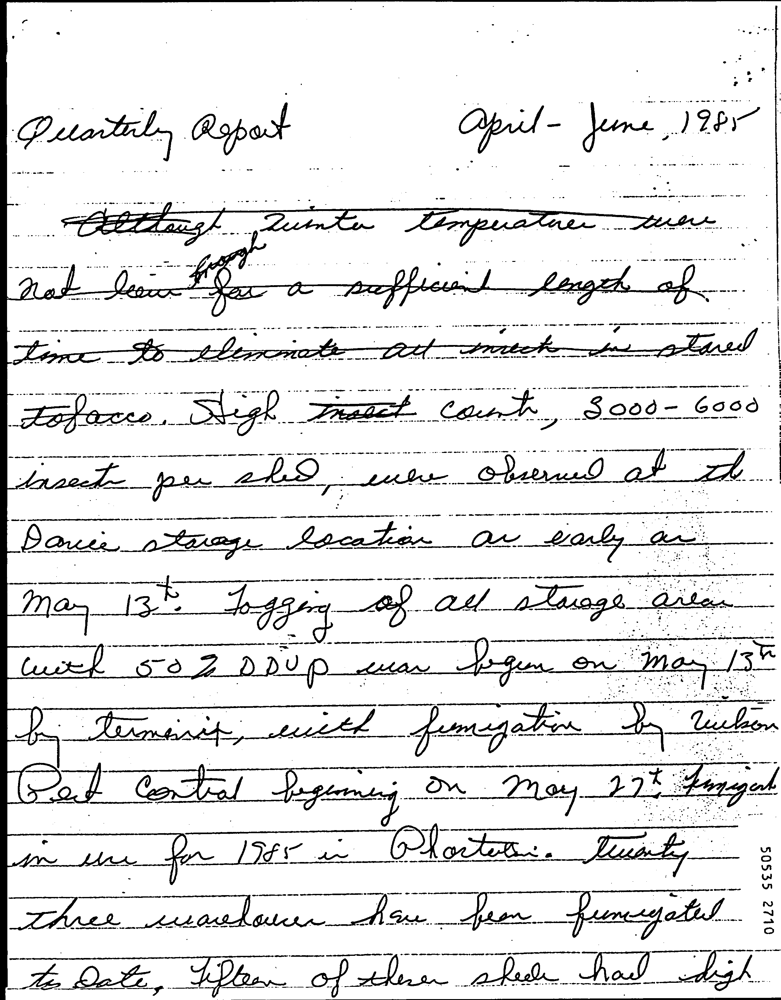 Quarterly Report April - June, 1985
Although winter temperatures were
enough
not low for a sufficient length of
time to eliminate all insects in stored
tobacco. High insect counts, 3000 - 6000
insects per shed, were observed at the
Davie storage location as early as
May 13th. Fogging of all storage areas
with 50% DDVP was begun on May 13th
by terminix, with fumigation by Wilson
Pest Control beginning on May 27th. Fumigant
in use for 1985 is Phostoxin. Twenty
three warehouses have been fumigated
to Date, fifteen of these sheds had high
50535 2710